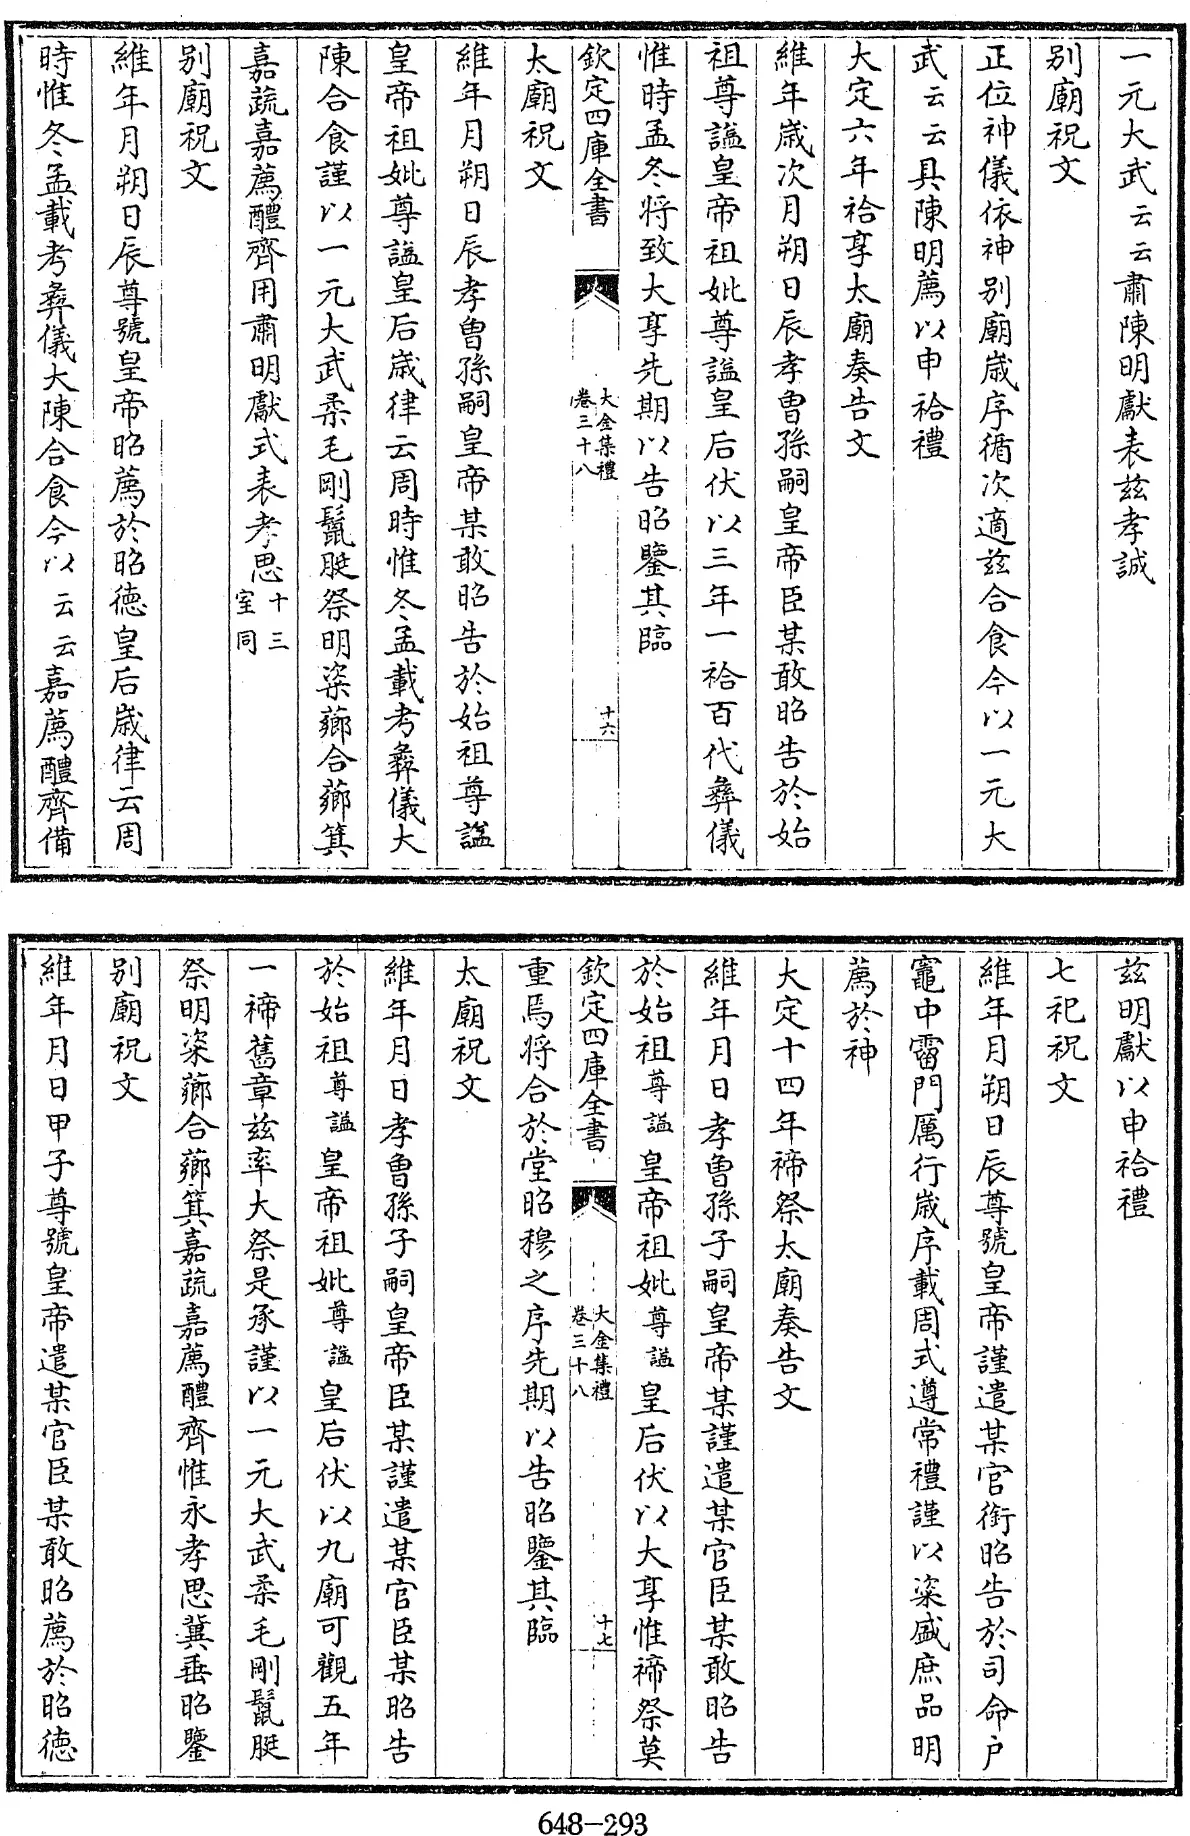 一元大武云云肅陳明獻表兹孝誠
别廟祝文
正位神儀依神别廟歲序循次適兹合食今以一元大
武云云具陳明薦以申祫禮
大定六年祫享太廟奏告文
維年歲次月朔日辰孝曾孫嗣皇帝臣某敢昭告於始
祖尊諡皇帝祖妣尊諡皇后伏以三年一祫百代彝儀
惟時孟冬将致大享先期以告昭鑒其臨
欽定四庫全書
大金集禮
卷三十八
十六
太廟祝文
維年月朔日辰孝曾孫嗣皇帝某敢昭告於始祖尊諡
皇帝祖妣尊諡皇后歲律云周時惟冬孟載考彝儀大
陳合食謹以一元大武柔毛剛鬛脡祭明粢薌合薌箕
嘉蔬嘉薦醴齊用肅明獻式表孝思十三室同
别廟祝文
維年月朔日辰尊號皇帝昭薦於昭德皇后歲律云周
時惟冬孟載考彝儀大陳合食今以云云嘉薦醴齊備
兹明獻以申祫禮
七祀祝文
維年月朔日辰尊號皇帝謹遣某官銜昭告於司命户
竈中霤門厲行歲序載周式遵常禮謹以粢盛庶品明
薦於神
大定十四年禘祭太廟奏告文
維年月日孝曾孫子嗣皇帝某謹遣某官臣某敢昭告
於始祖尊諡皇帝祖妣尊諡皇后伏以大享惟禘祭莫
欽定四庫全書
大金集禮
卷三十八
十七
重焉将合於堂昭穆之序先期以告昭鑒其臨
太廟祝文
維年月日孝曾孫子嗣皇帝臣某謹遣某官臣某昭告
於始祖尊諡皇帝祖妣尊諡皇后伏以九廟可觀五年
一禘舊章兹率大祭是承謹以一元大武柔毛剛鬛脡
祭明粢薌合薌箕嘉蔬嘉薦醴齊惟永孝思冀垂昭鑒
别廟祝文
維年月日甲子尊號皇帝遣某官臣某敢昭薦於昭德
648-293